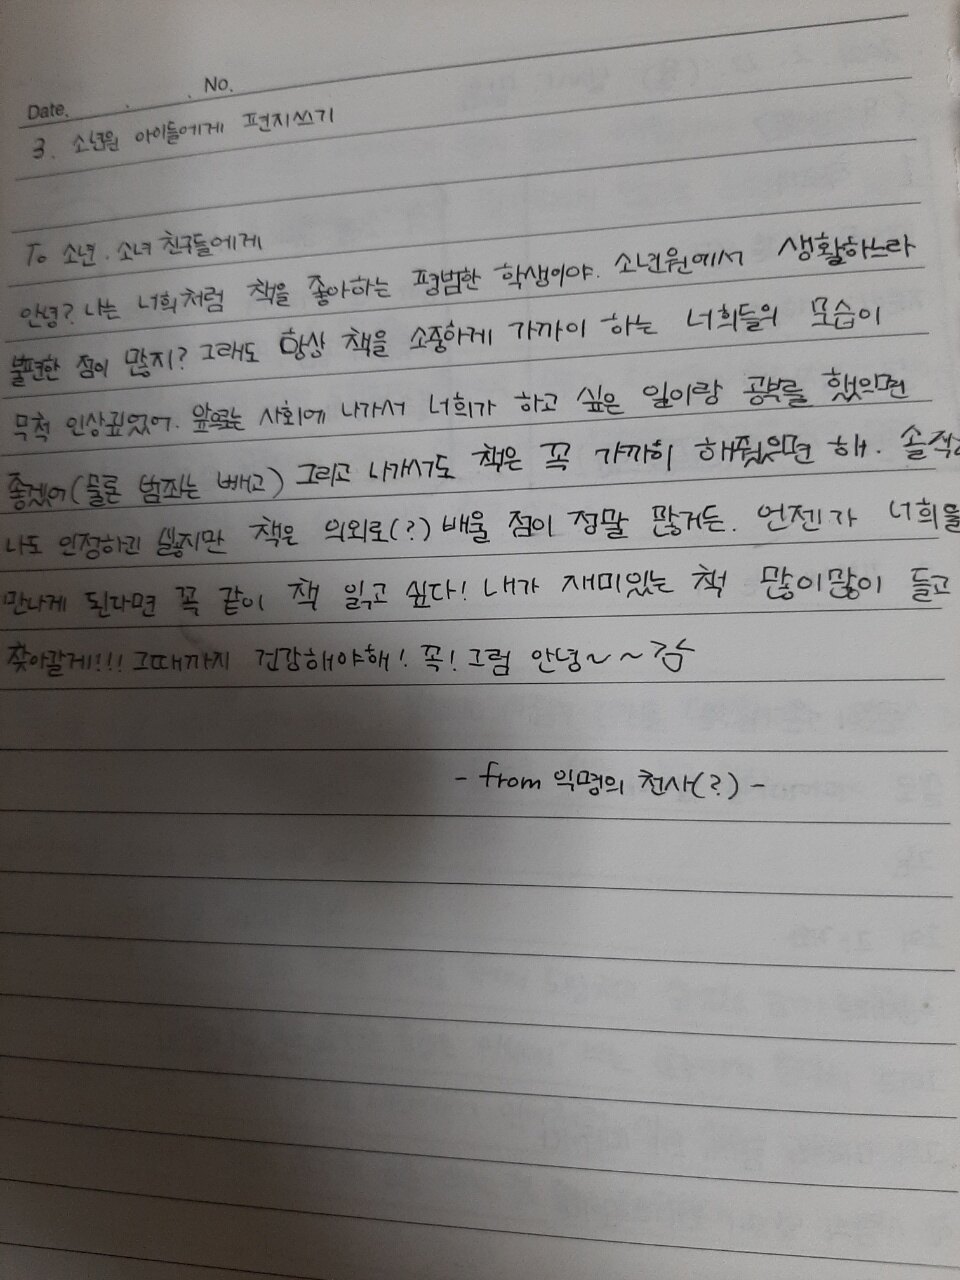 Date. . . No.
3. 소년원 아이들에게 편지쓰기
To 소년. 소녀 친구들에게
안녕? 나는 너희처럼 책을 좋아하는 평범한 학생이야. 소년원에서 생활하느라
불편한 점이 많지? 그래도 항상 책을 소중하게 가까이 하는 너희들의 모습이
무척 인상깊었어. 앞으로는 사회에 나가서 너희가 하고 싶은 일이랑 공부를 했으면
좋겠어(물론 범죄는 빼고) 그리고 나가서도 책은 꼭 가까히 해줬으면 해. 솔직히
나도 인정하긴 싫지만 책은 의외로(?) 배울 점이 정말 많거든. 언젠가 너희를
만나게 된다면 꼭 같이 책 읽고 싶다! 내가 재미있는 책 많이많이 들고
찾아갈게!!! 그때까지 건강해야해! 꼭! 그럼 안녕~~
- from 익명의 천사(?) -